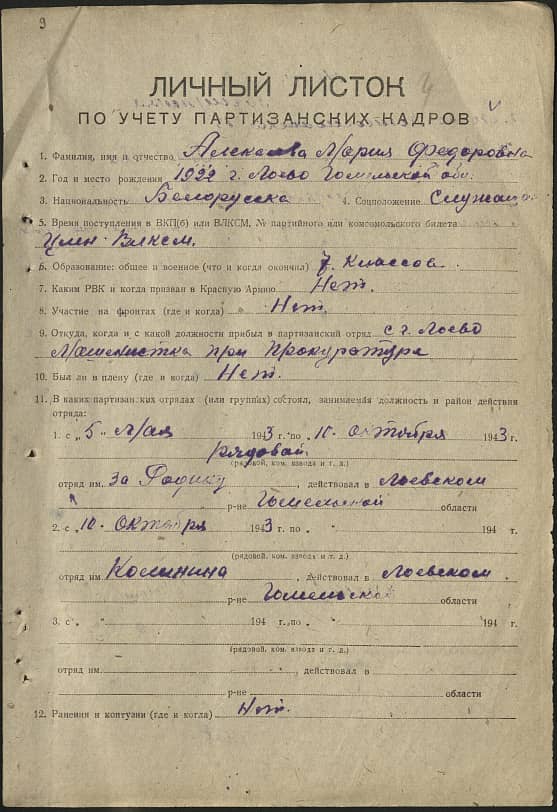 9
ЛИЧНЫЙ ЛИСТОК
ПО УЧЕТУ ПАРТИЗАНСКИХ КАДРОВ
1. Фамилия, имя и отчество Мария Федоровна
2. Год и место рождения 1922 г. Лоево Гомельской обл.
3. Национальность Белорусска 4. Соцположение Служащ
5. Время поступления в ВКП(б) или ВЛКСМ, № партийного или комсомольского билета
Член Влксм.
6. Образование: общее и военное (что и когда окончил) 7 классов
7. Каким РВК и когда призван в Красную Армию Нет.
8. Участие на фронтах (где и когда) Нет.
9. Откуда, когда и с какой должности прибыл в партизанский отряд с г. Лоево
Машенистка при прокуратуре
10. Был ли в плену (где и когда) Нет.
11. В каких партизанских отрядах (или группах) состоял, занимаемая должность и район действия
отряда:
1. с „5" Мая 1943 г. по „10. Октября 1943 г.
рядовой
(рядовой, ком. взвода и т. д.)
отряд им. За Родину, действовал в Лоевском
р-не Гомельской области
2. с „10. Октября 1943 г. по „ " 194 г.
(рядовой, ком. взвода и т. д.)
отряд им Калинина, действовал в Лоевском
р-не Гомельской области
3. с „ " 194 г. по „ " 194 г.
(рядовой, ком. взвода и т. д.)
отряд им. , действовал в
р-не области
12. Ранения и контузии (где и когда) Нет.